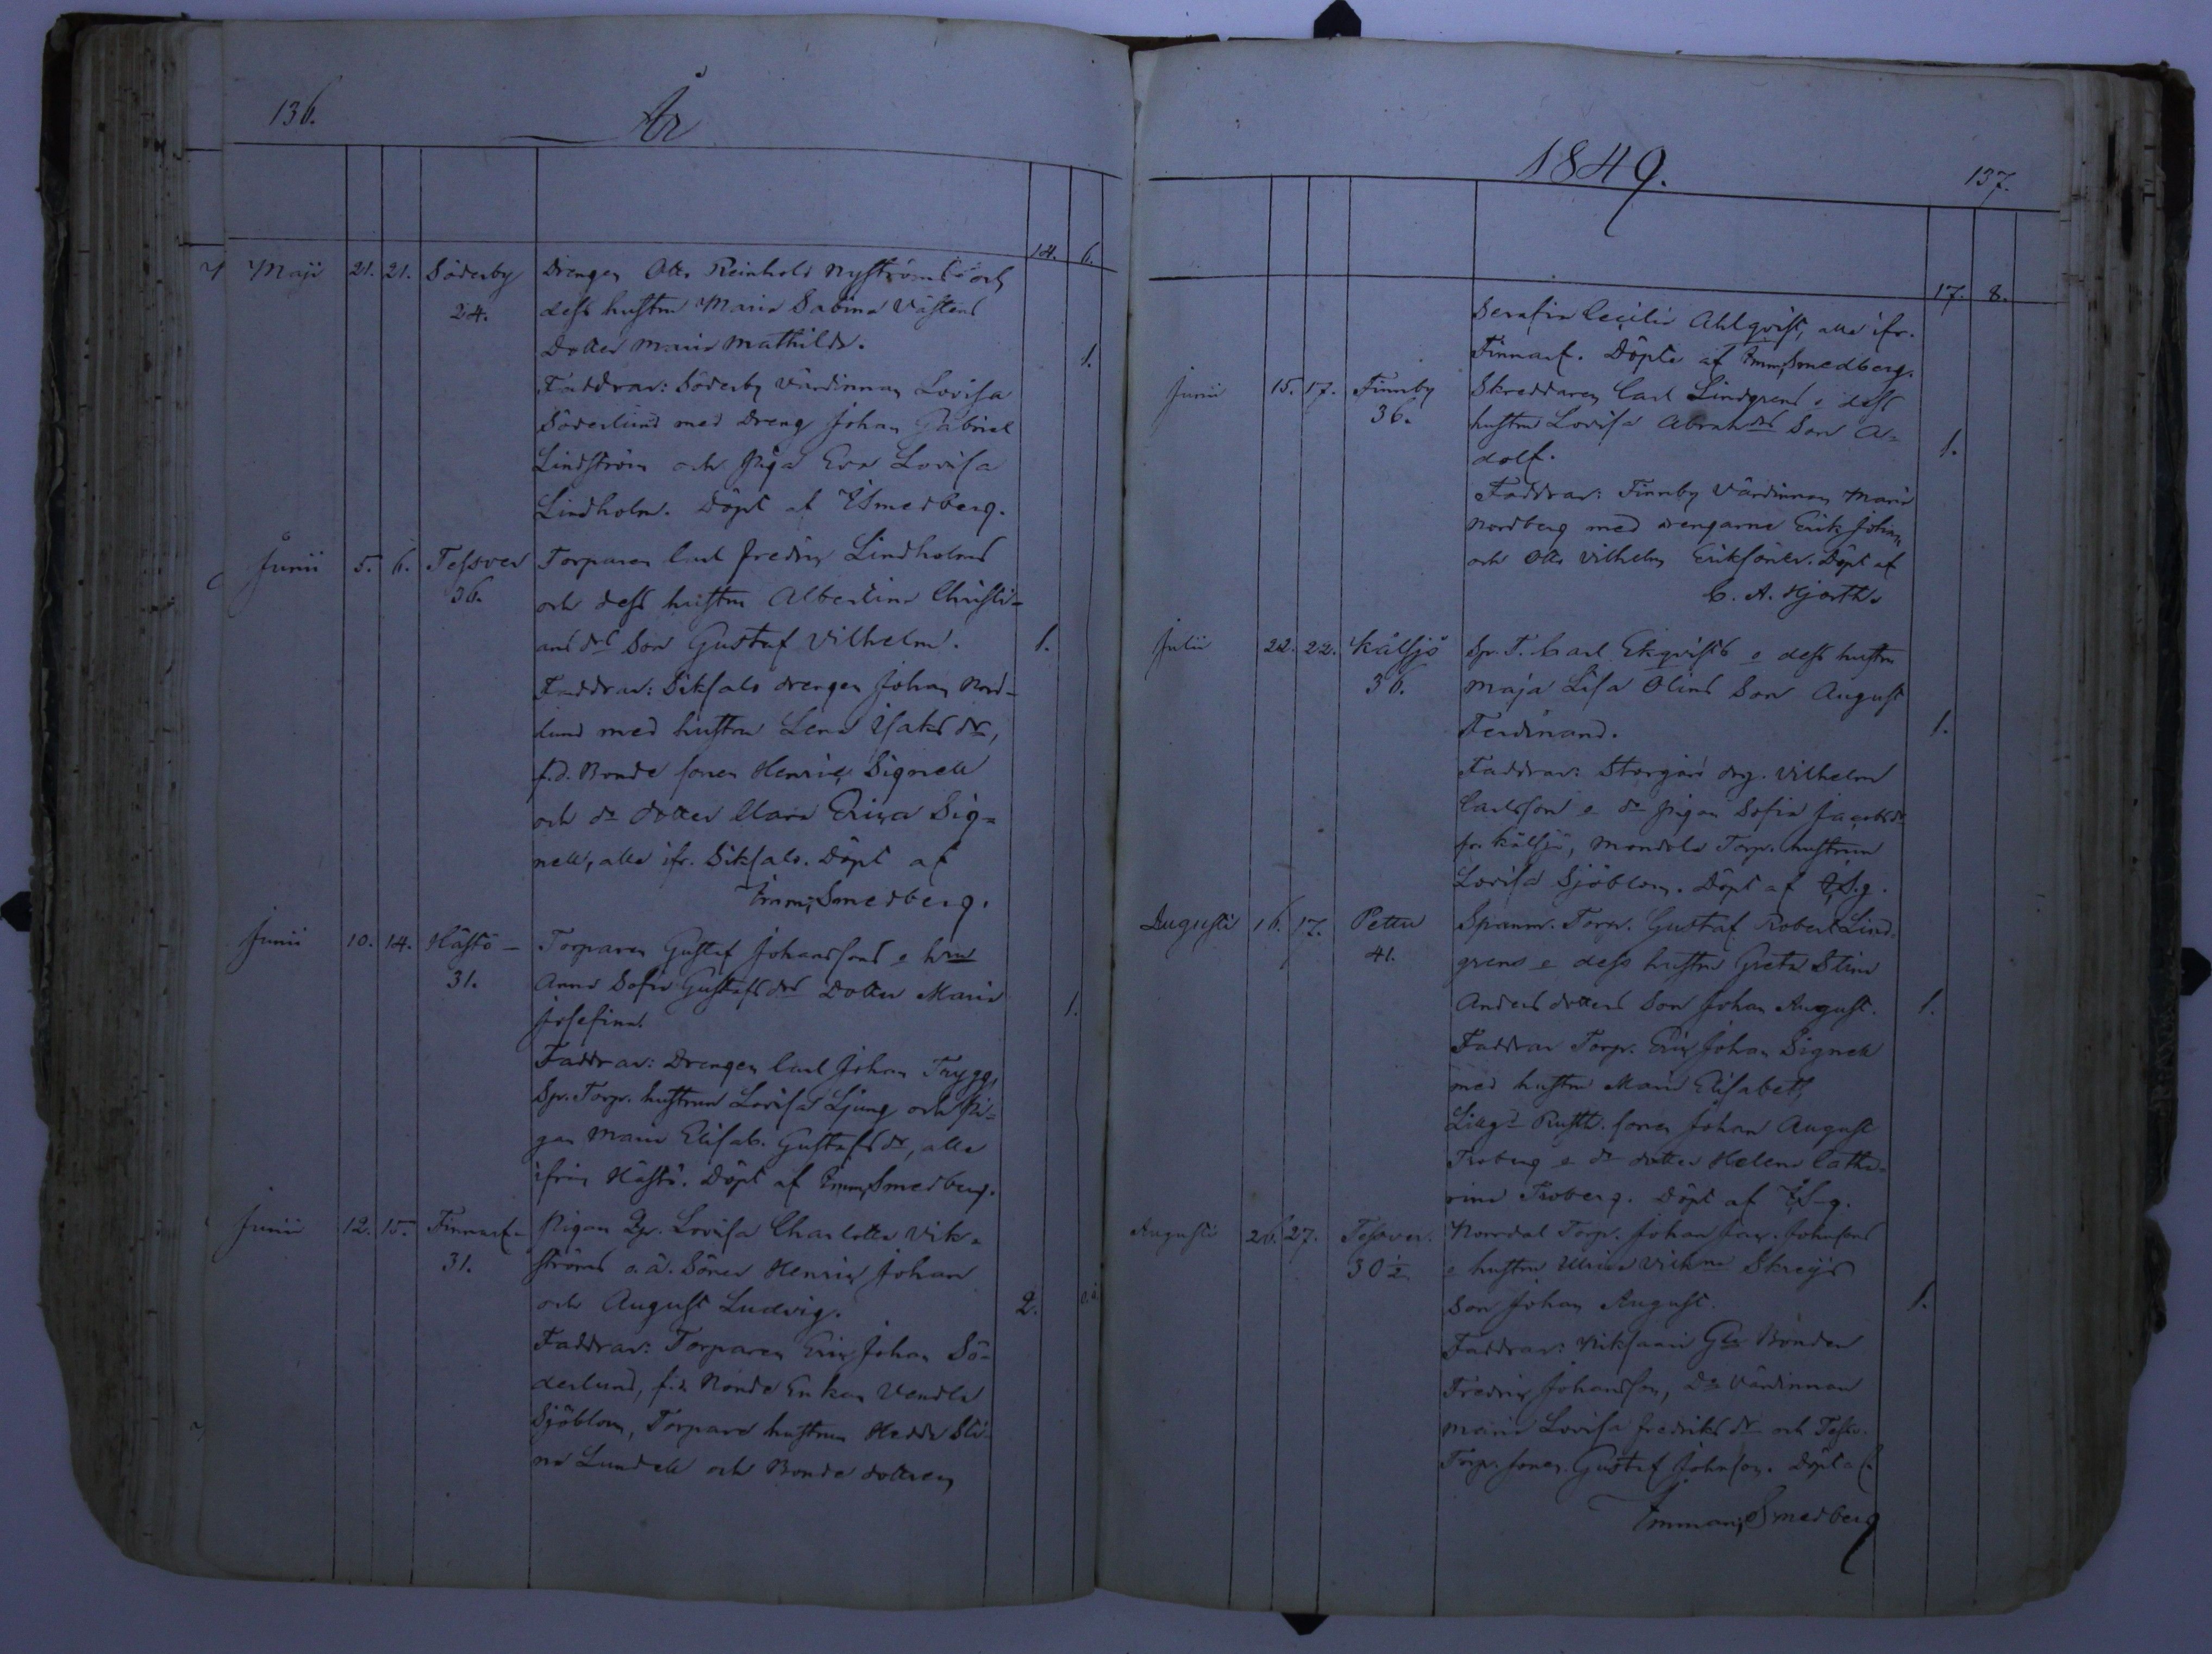 136.
År
14. 6.
Maji 21. 21. Söderby Drengen Otto Reinhold Nyströms och
24. dess hustru Maria Sabina Västens
Dotter Maria Mathilda. 1.
Faddrar: Söderby Värdinnan Lovisa
Söderlund med Dreng Johan Gabriel
Lindström och Piga Eva Lovisa
Lindholm. Döpt af ESmedberg.
Junii 5. 6. Tessver Torparen Carl Fredric Lindholms
36. och dess hustru Albertina Christi-
ans drs Son Gustaf Vilhelm. 1.
Faddrar: Siksalo drengen Johan Nord-
lund med hustru Lena Isaks dr,
f.d. Bonde sonen Henric Signell
och do dotter Clara Erica Sig-
nell, alla ifr. Siksalo. Döpt af
Emm. Smedberg.
Junii 10. 14. Hästö- Torparen Gustaf Johanssons e hrus
31. Anna Sofia Gustafs drs Dotter Maria
Josefina. 1.
Faddrar: Drengen Carl Johan Trygg,
Sp. Torp. hustrun Lovisa Ljung och Pi-
gan Maria Elisab. Gustafs dr, alla
ifrån Hästö. Döpt af Emm. Smedberg.
Junii 12. 15. Finnarf- Pigan Qp. Lovisa Charlotta Vik-
31. ströms o.ä. Söner Henric Johan
och August Ludvig. 2. o.ä.
Faddrar: Torparen Eric Johan Sö-
derlund, f.d. Bonde Enkan Vendla
Sjöblom, Torpare hustrun Hedda Sti-
na Lundell och Bonde dottren
1849.
137.
17. 8.
Serafia Cecilia Ahlqvist, alla ifr.
Finnarf. Döpte af Emm. Smedberg.
Junii 15. 17. Finnby Skreddaren Carl Lindgrens e dess
36. hustru Lovisa Abrah drs Son A-
dolf. 1.
Faddrar: Finnby Värdinnan Maria
Nordberg med drengarne Erik Johan
och Otto Vilhelm Eriksöner. Döpt af
C. A. Hjorth.
Julii 22. 22. Källsjö Sp. T. Carl Ekqvists e dess hustru
36. Maja Lisa Olins Son August
Ferdinand. 1.
Faddrar: Storgård drg. Vilhelm
Carlsson e do pigan Sofia Jacobs dr
fr. Källsjö, Mondola Torp. hustrun
Lovisa Sjöblom. Döpt af E.S.g.
Augusti 16. 17. Pettu Spanm. Torp. Gustaf Robert Lind-
41. grens e dess hustru Greta Stina
Anders dotters Son Johan August. 1.
Faddrar Torp. Eric Johan Signell
med hustru Maria Elisabet,
Lillgd Rusth. sonen Johan August
Troberg e do dotter Helena Catha-
rina Troberg. Döpt af E.S-g.
Augusti 26. 27. Tessver. Norrdal Torp. Johan Jac. Johnsons
30 ½ e hustru Ulrica Vilh:na Skreijs
Son Johan August. 1.
Faddrar: Gln Bonden
Fredric Johansson, Do Värdinnan
Maria Lovisa Fredriks dr och Tessv.
Torp. sonen Gustaf Johnson. Döpt af
Emman. Smedberg